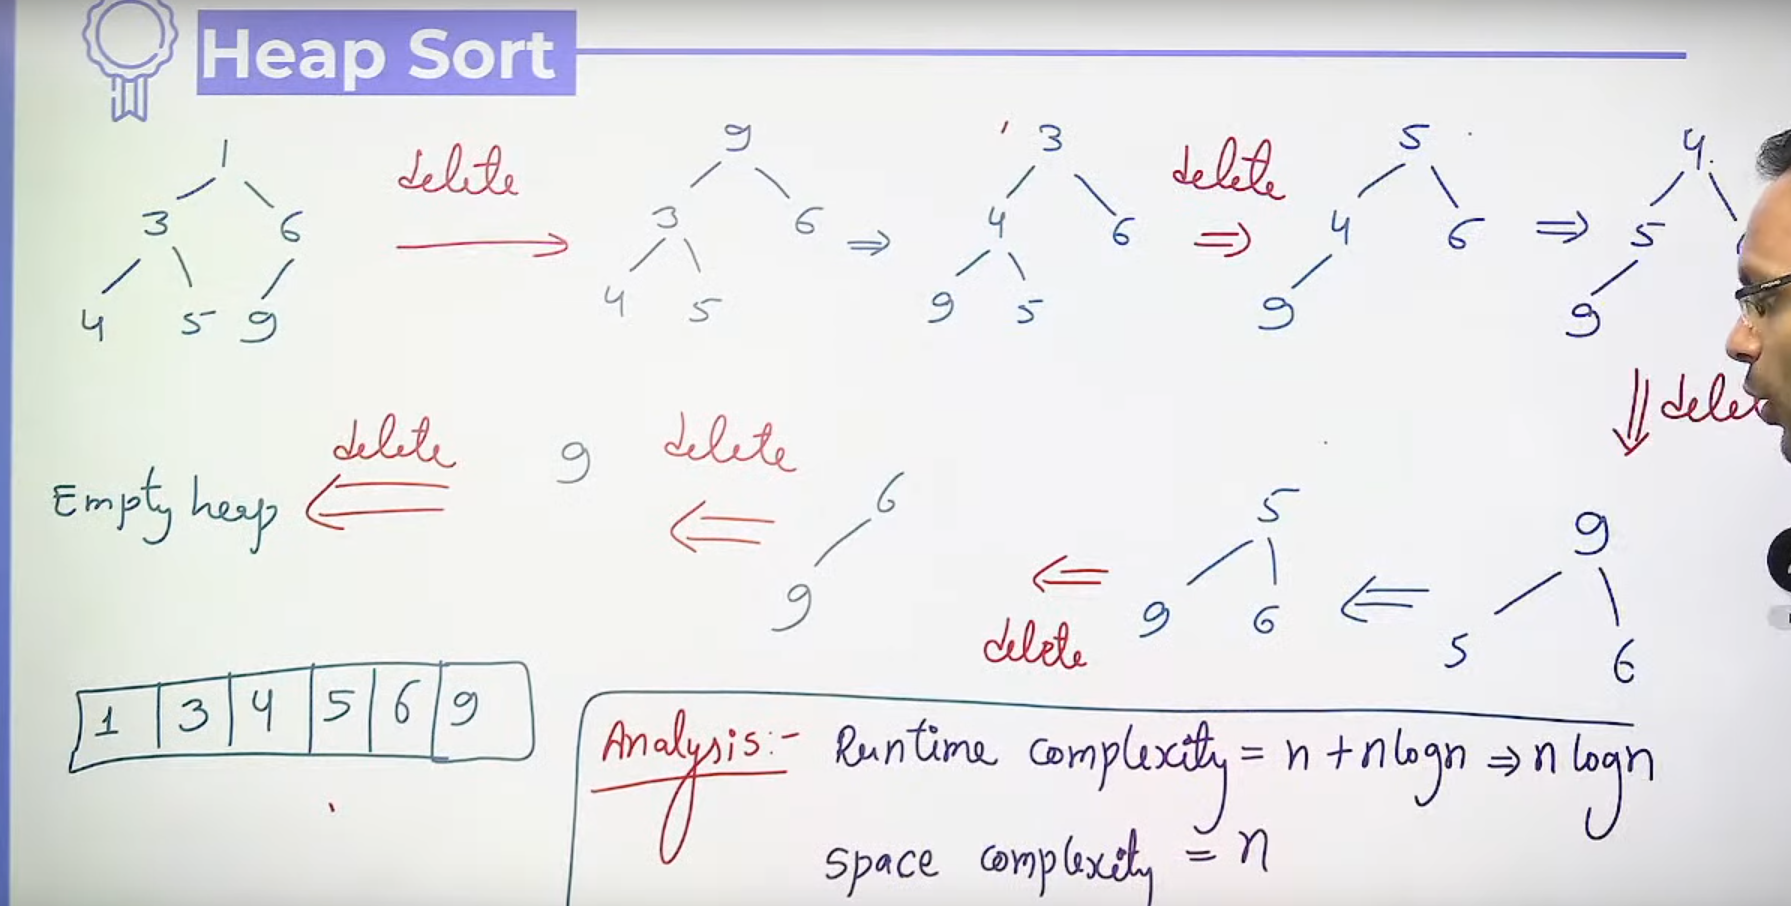 Heap Sort
1
3 6
4 5 9
delete
9
3 6
4 5
⇒
3
4 6
9 5
delete
⇒
5
4 6
9
⇒
4
5
9
⇓
9
5 6
⇐
5
9 6
⇐
delete
6
9
delete
⇐
9
delete
⇐
Empty heap
1 3 4 5 6 9
Analysis:- Runtime complexity = n + nlogn ⇒ n logn
space complexity = n